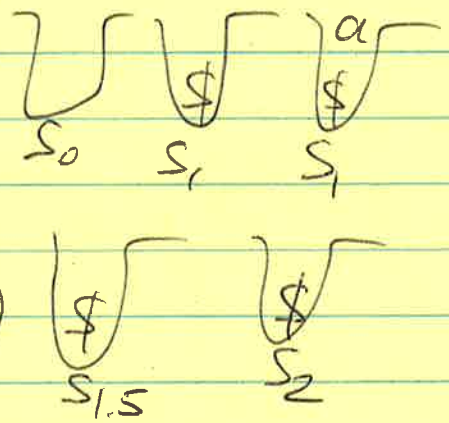 a
$ $
S0 S1 S1
$ $
S1.5 S2